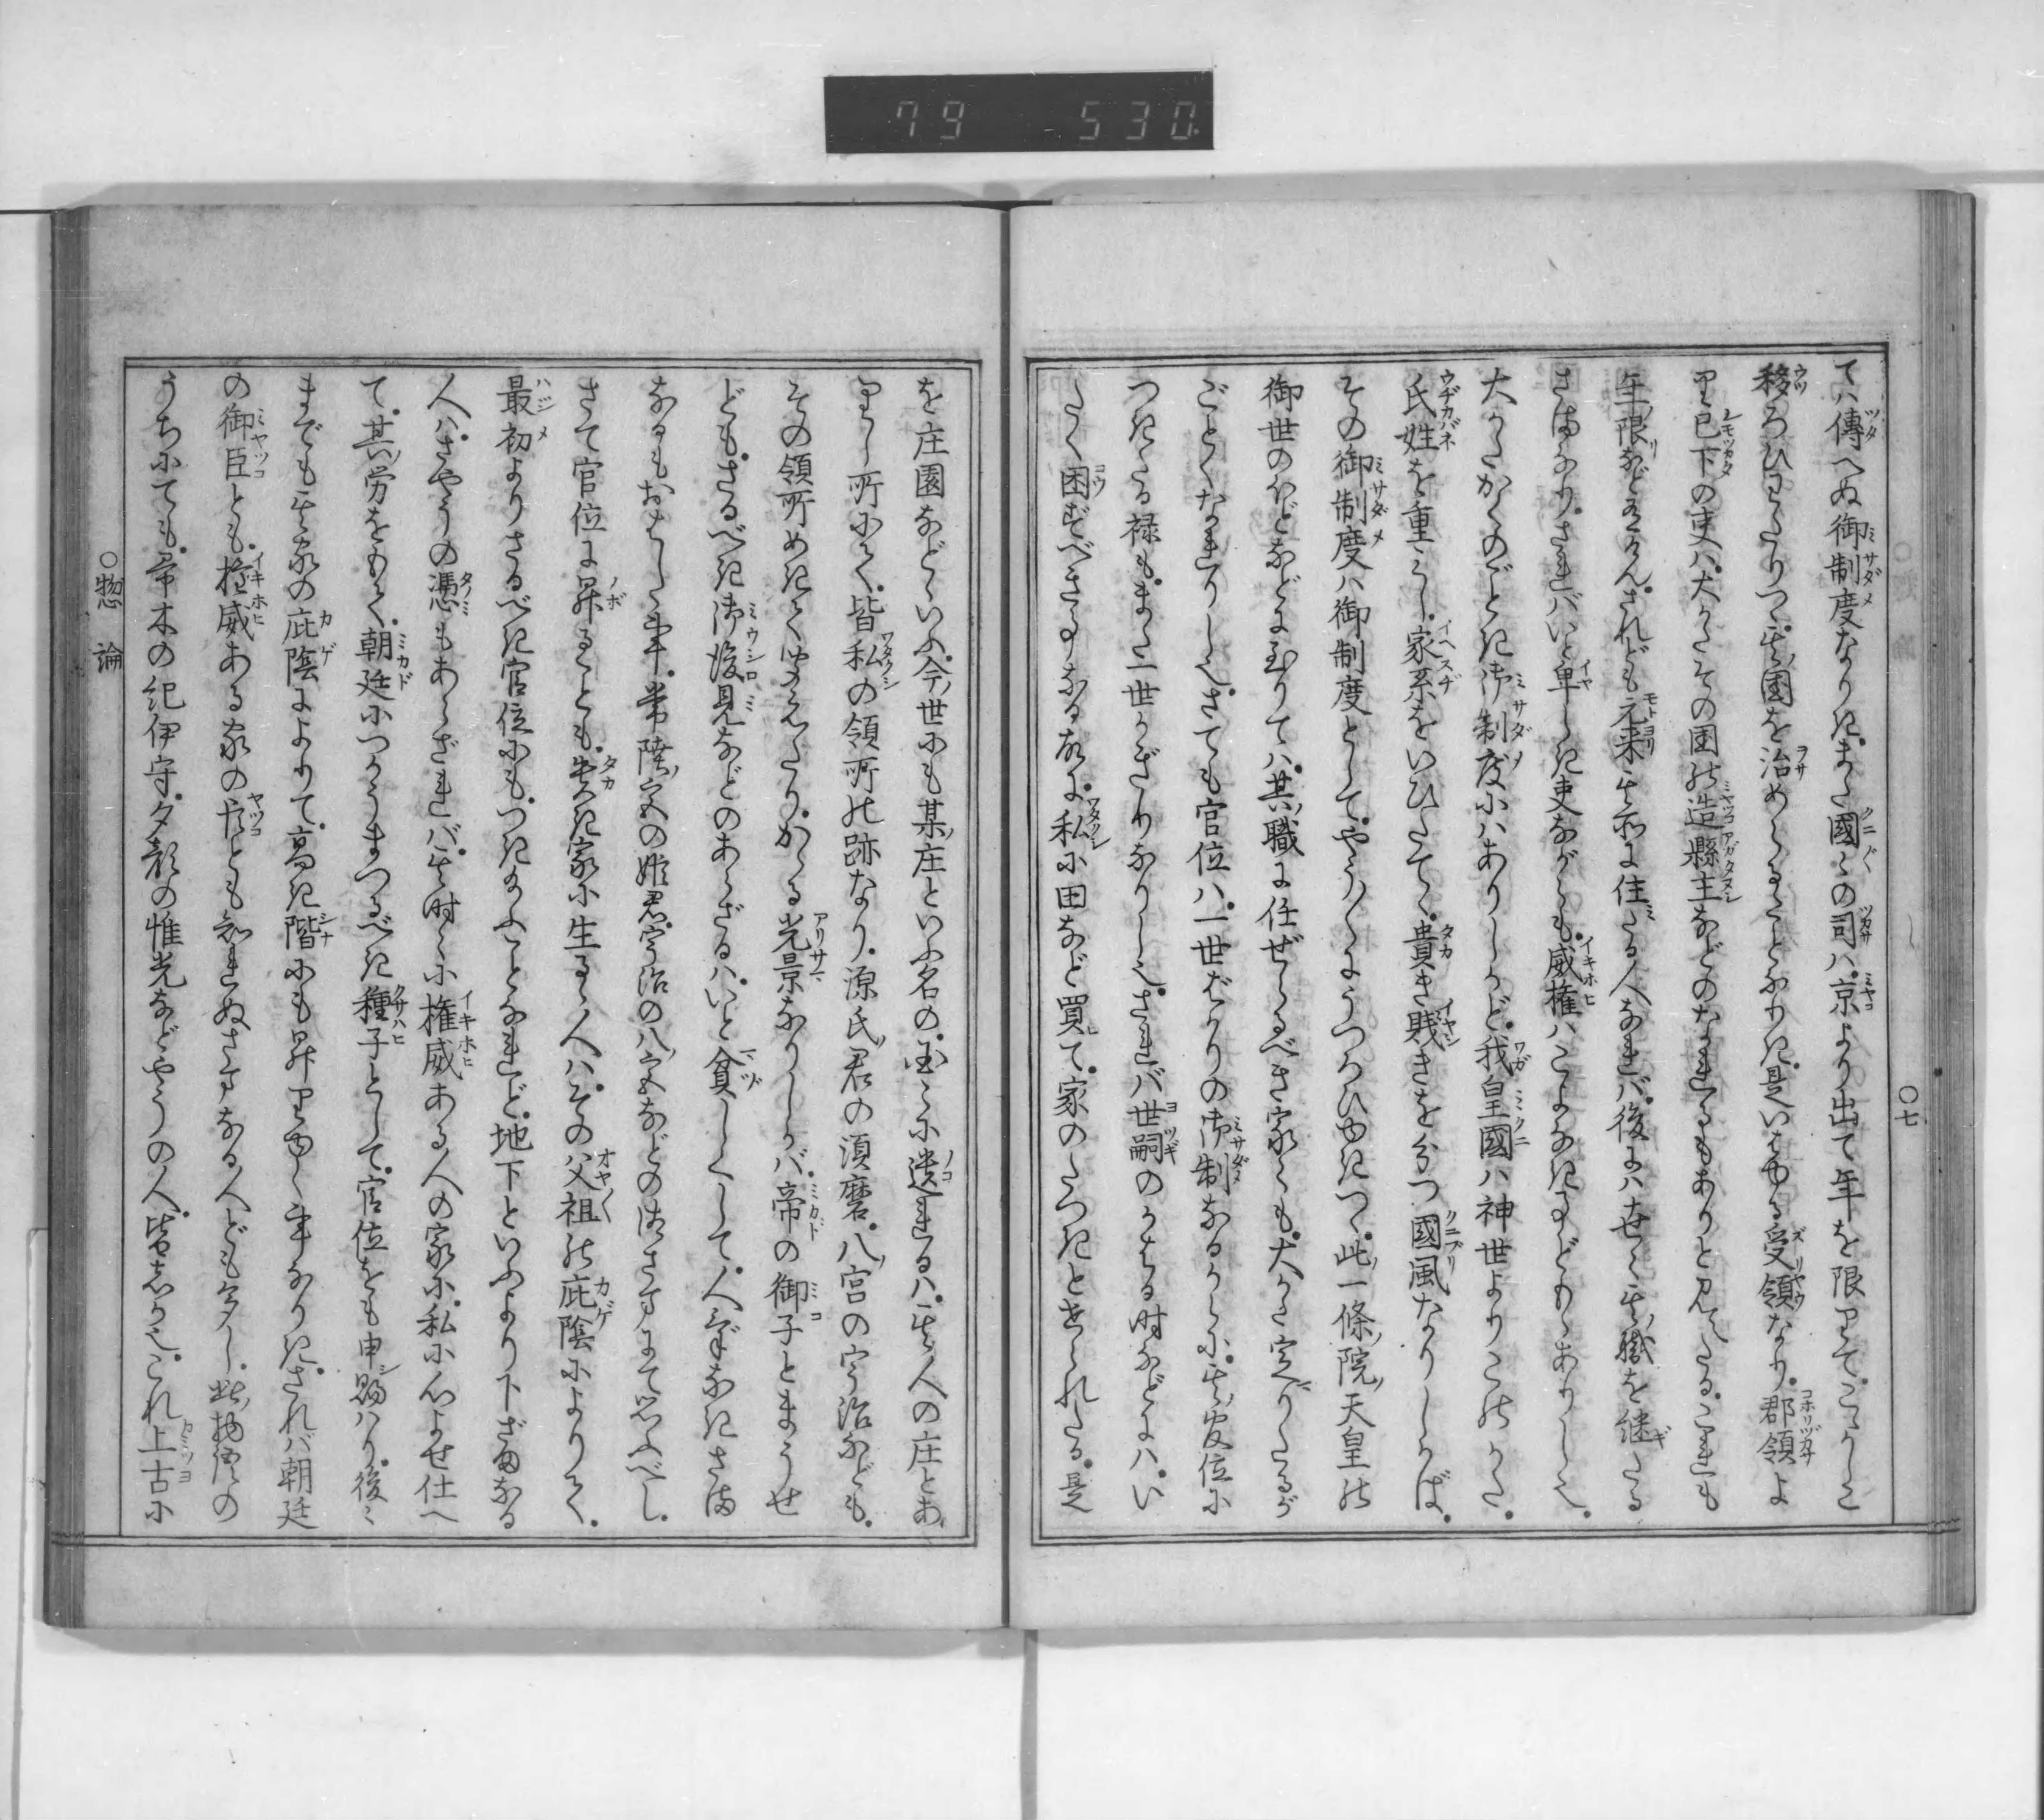 79 530
てハ傳へぬ御制度なりき。また國々の司ハ、京より出て年を限りて、こゝかしこ
移ろひわたりつゝ、其ノ國を治めらるゝことなりき。是いはゆる受領なり。郡領よ
り已下の吏ハ、大かたその国の造縣主などのなれるもありと見えたる。これも
年ノ限リなど有けん。されども元来其所に住ミたる人なれバ、後にハ世々其ノ職を継ギたる
さまなり。されバいと卑しき吏ながらも、威権ハこよなき事どもゝありし也。
大かたかくのごとき御制度にハありしかど、我皇國ハ神世よりこのかた、
氏姓を重みし、家系をいひたてゝ、貴き賤きを分つ國風なりしかば、
その御制度ハ御制度として、やう〳〵にうつろひゆきつゝ、此ノ一條ノ院ノ天皇の
御世のほどなどに至りてハ、其ノ職に任ぜらるべき家々も、大かた定りたるが
ごとくなれりし也。さても官位ハ、一世ばかりの御制なるからに、其ノ官位に
つきたる禄も、また一世かぎりなりし也。されバ世嗣のかはる時などにハ、い
たく困ずべき事なる故に、私に田など買ヒて、家のたつきとせられたる。是
〇七
を庄園などゝいふ。今ノ世にも某ノ庄といふ名の、国々に遺れるハ、其人の庄とあ
りし所にて、皆私の領所の跡なり。源氏ノ君の須磨、八ノ宮の宇治なども、
その領所めきて聞えたり。かゝる光景なりしかバ、帝の御子とまうせ
ども、さるべき御後見などのあらざるハ、いと貧しくして、人げなきさま
なるもおはした事、常陸ノ宮の姫君、宇治の八ノ宮などの御さまにて思ふべし。
さて官位に昇ることも、貴き家に生るゝ人ハ、その父祖の庇陰によりて、
最初よりさるべき官位にも、つき給ふことなれど、地下といふより下ざまなる
人ハ、さやうの憑もあらざれバ、其時々に権威ある人の家に、私に心よせ仕へ
て、其ノ労をもて、朝廷につかうまつるべき種子として、官位をも申シ賜ハり、後々
までも其家の庇陰によりて、高き階にも昇りゆく事なりき。されバ朝廷
の御臣とも、権威ある家の臣とも知れぬさまなる人ども多し。此ノ物語の
うちにても、帚木の紀伊守、夕顔の惟光などやうの人、皆しか也。これ上古に
〇惣論